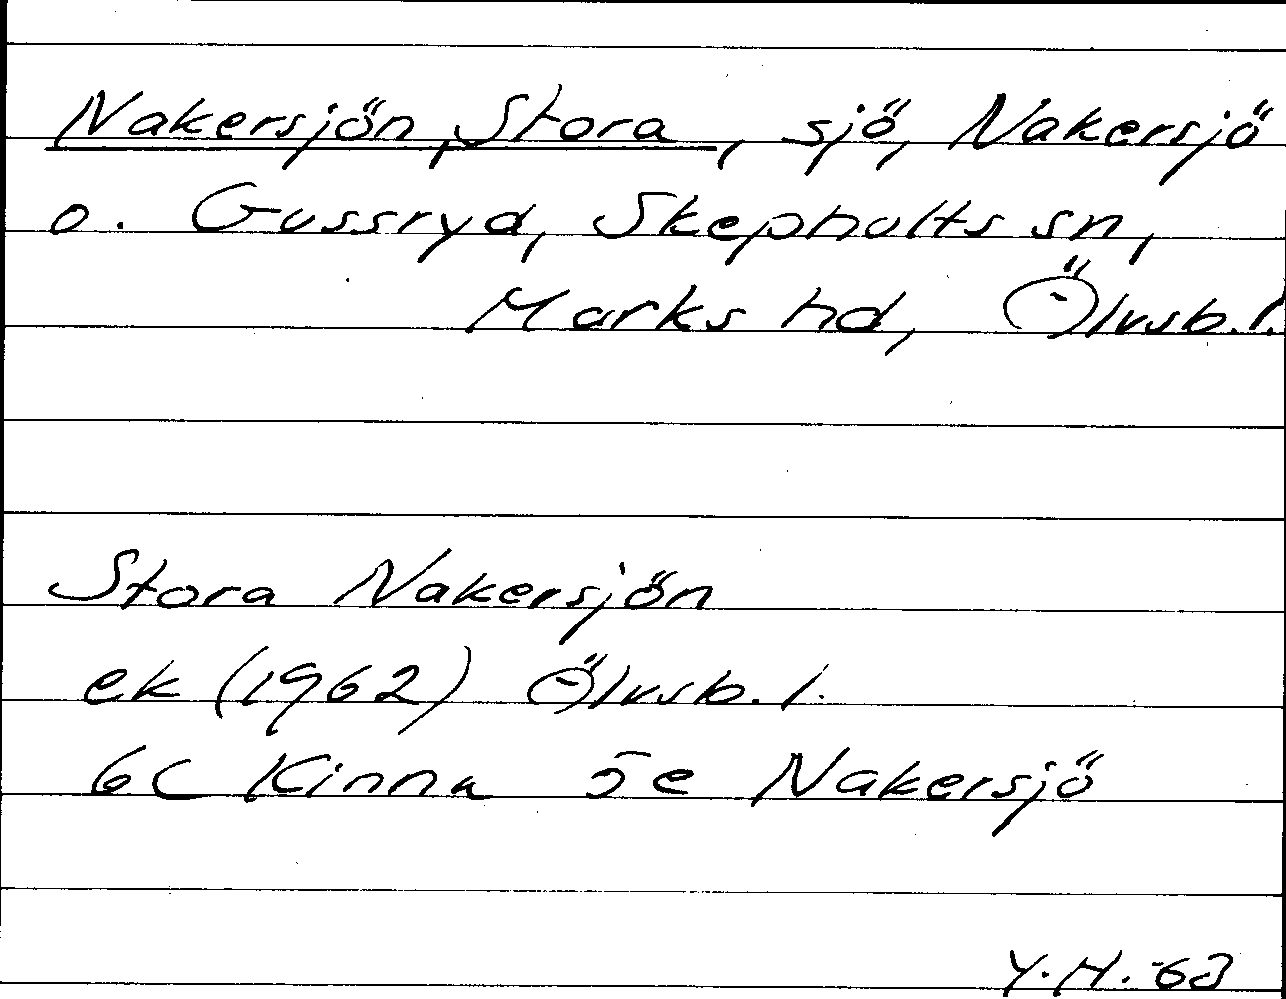 Nakersjön, Stora, sjö, Nakersjö
o. Gussryd, Skephults sn,
Marks hd, Älvsb. l.
Stora Nakersjön
ek (1962) Älvsb. l.
6C Kinna 5e Nakersjö
Y.H. -63